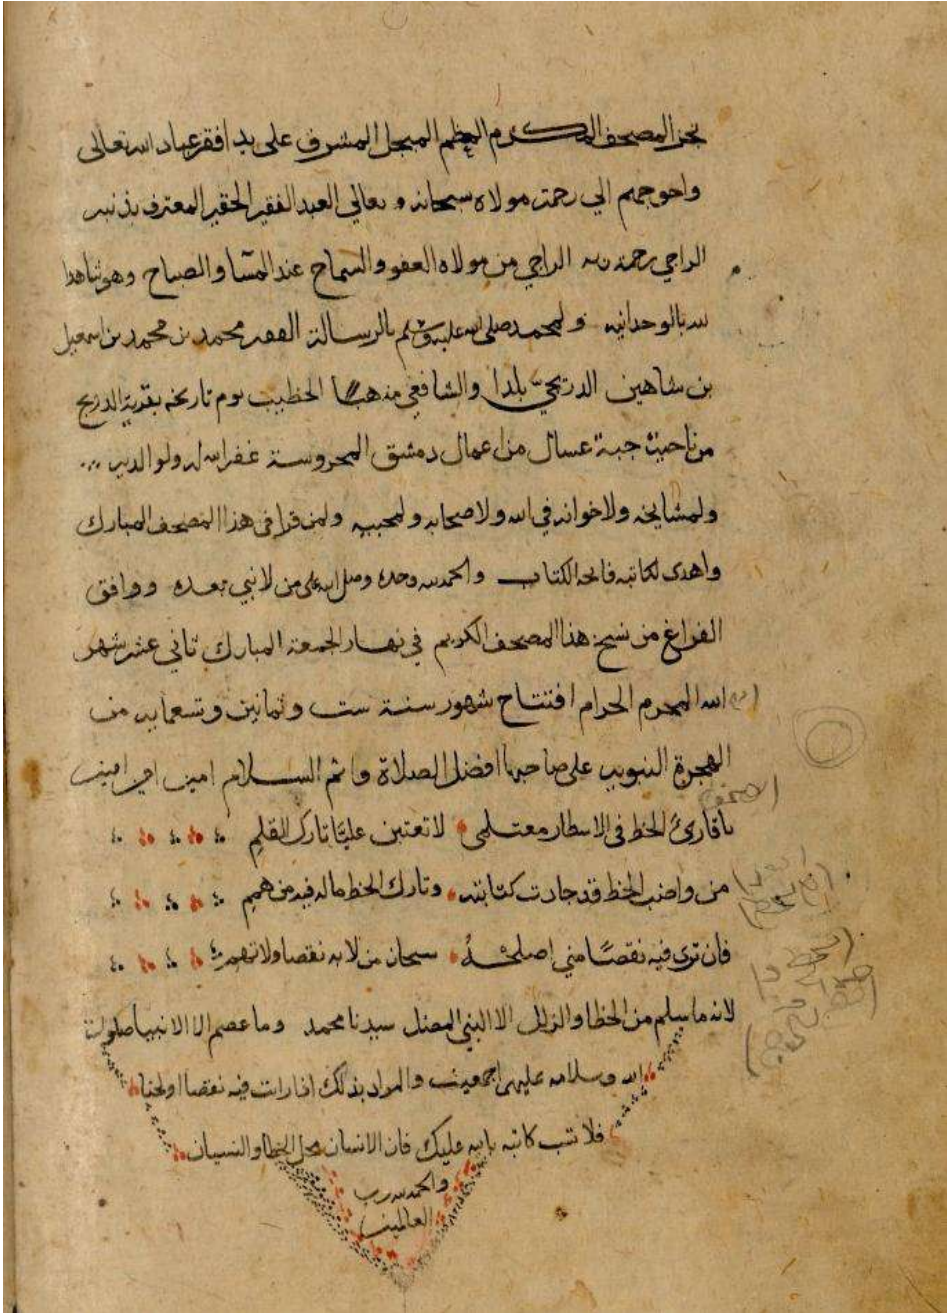 نجز المصحف المكرم المعظم المبجل المشرف على يد افقر عباد الله تعالى
واحوجهم الي رحمة مولاه سبحانه و تعالي العبد الفقير الحقير المعترف بذنبه
الراجي رحمة ربه الراجي من مولاه العفو والسماح عند المسا والصباح وهو شاهدا
لله بالوحدانيه ولمحمد صلى الله عليه وسلم بالرسالة الفقير محمد بن محمد بن اسمعيل
بن شاهين الدريجي بلدا والشافعي مذهبا الخطيب يوم تاريخه بقرية الدريج
من ناحية جبة عسال من اعمال دمشق المحروسة غفر الله له ولوالديه
ولمشايخه ولاخوانه في الله ولاصحابه ولمحبيه ولمن قرا في هذا المصحف المبارك
واهدى لكاتبه فاتحة الكتاب والحمد لله وحده وصلى الله على من لا نبي بعده ووافق
الفراغ من نسخ هذا المصحف الكريم في نهار الجمعة المبارك ثاني عشر شهر
الله المحرم الحرام افتتاح شهور سنة ست وثمانين وتسعمايه من
الهجرة النبويه على صاحبها افضل الصلاة واتم السلام امين امين امين
يا قارئ الخط في الاسطار معتلمي لا تعتبن عليَّا تارك القلم
من واضب الخط قد جادت كتابته وتارك الخط ماله فيه من همم
فان ترى فيه نقصًا مني اصلحهُ سبحان من لا به نقصا ولا
لانه ما سلم من الخطا والزلل الا النبي المفضل سيدنا محمد وما عصم الا الانبيا صلوات
الله وسلامه عليهم اجمعين والمراد بذلك اذا رات فيه نقصا او لحنا
فلا تسب كاتبه بالله عليك فان الانسان محل الخطا والنسيان
والحمد لله رب
العالمين